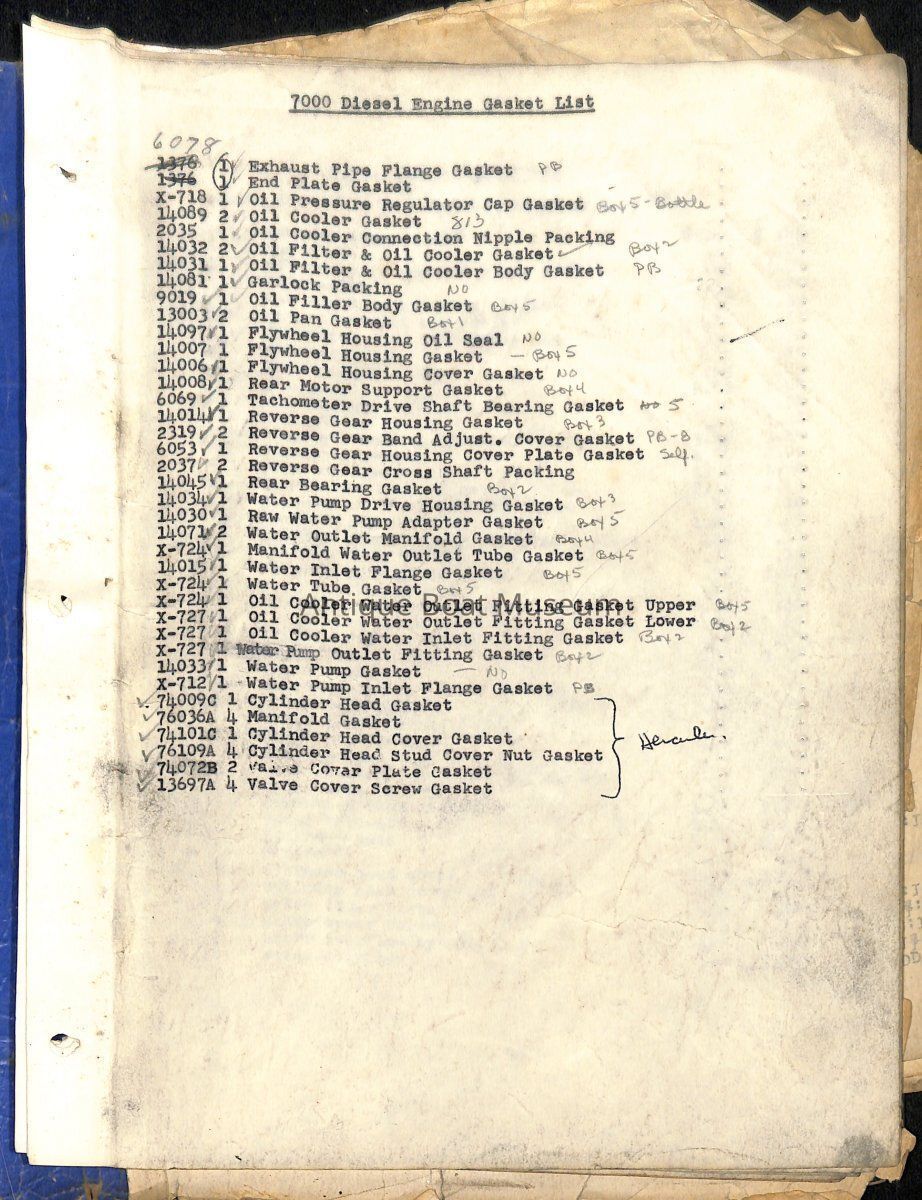 7000 Diesel Engine Gasket List
6078
1376 1 Exhaust Pipe Flange Gasket PB
1376 1 End Plate Gasket
X-718 1 Oil Pressure Regulator Cap Gasket Box 5 - Bottle
14089 2 Oil Cooler Gasket 813
2035 1 Oil Cooler Connection Nipple Packing
14032 2 Oil Filter & Oil Cooler Gasket Box 2
14031 1 Oil Filter & Oil Cooler Body Gasket PB
14081 1 Garlock Packing NO
9019 1 Oil Filler Body Gasket Box 5
13003 2 Oil Pan Gasket Box 1
14097 1 Flywheel Housing Oil Seal NO
14007 1 Flywheel Housing Gasket - Box 5
14006 1 Flywheel Housing Cover Gasket NO
14008 1 Rear Motor Support Gasket Box 4
6069 1 Tachometer Drive Shaft Bearing Gasket NO 5
14014 1 Reverse Gear Housing Gasket Box 3
2319 2 Reverse Gear Band Adjust. Cover Gasket PB-B
6053 1 Reverse Gear Housing Cover Plate Gasket Self.
2037 2 Reverse Gear Cross Shaft Packing
14045 1 Rear Bearing Gasket Box 2
14034 1 Water Pump Drive Housing Gasket Box 3
14030 1 Raw Water Pump Adapter Gasket Box 5
14071 2 Water Outlet Manifold Gasket Box 4
X-724 1 Manifold Water Outlet Tube Gasket Box 5
14015 1 Water Inlet Flange Gasket Box 5
X-724 1 Water Tube Gasket Box 5
X-724 1 Oil Cooler Water Outlet Fitting Gasket Upper Box 5
Antique Boat Museum
X-727 1 Oil Cooler Water Outlet Fitting Gasket Lower Box 2
X-727 1 Oil Cooler Water Inlet Fitting Gasket Box 2
X-727 1 Water Pump Outlet Fitting Gasket Box 2
14033 1 Water Pump Gasket - NO
X-712 1 Water Pump Inlet Flange Gasket PB
74009C 1 Cylinder Head Gasket
76036A 4 Manifold Gasket
74101C 1 Cylinder Head Cover Gasket Hercules.
76109A 4 Cylinder Head Stud Cover Nut Gasket
74072B 2 Valve Cover Plate Gasket
13697A 4 Valve Cover Screw Gasket